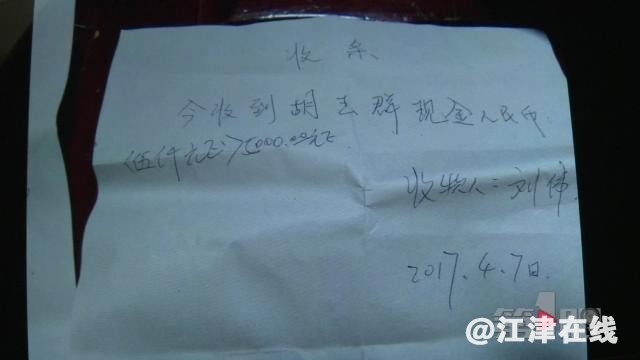 收条
今收到胡志群现金人民币
(伍仟元正)5000.00元正
收物人:刘伟
2017.4.7日.
第1眼
@江津在线